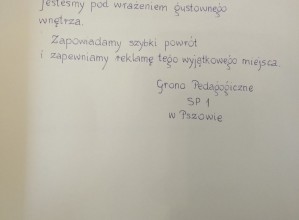 jesteśmy pod wrażeniem gustownego
wnętrza.
Zapowiadamy szybki powrót
i zapewniamy reklamę tego wyjątkowego miejsca.
Grono Pedagogiczne
SP 1
w Pszowie